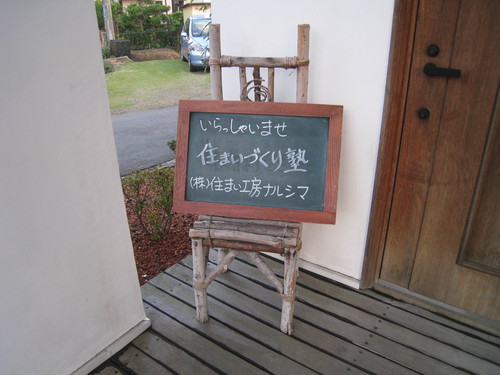 いらっしゃいませ
住まいづくり塾
(株)住まい工房ナルシマ